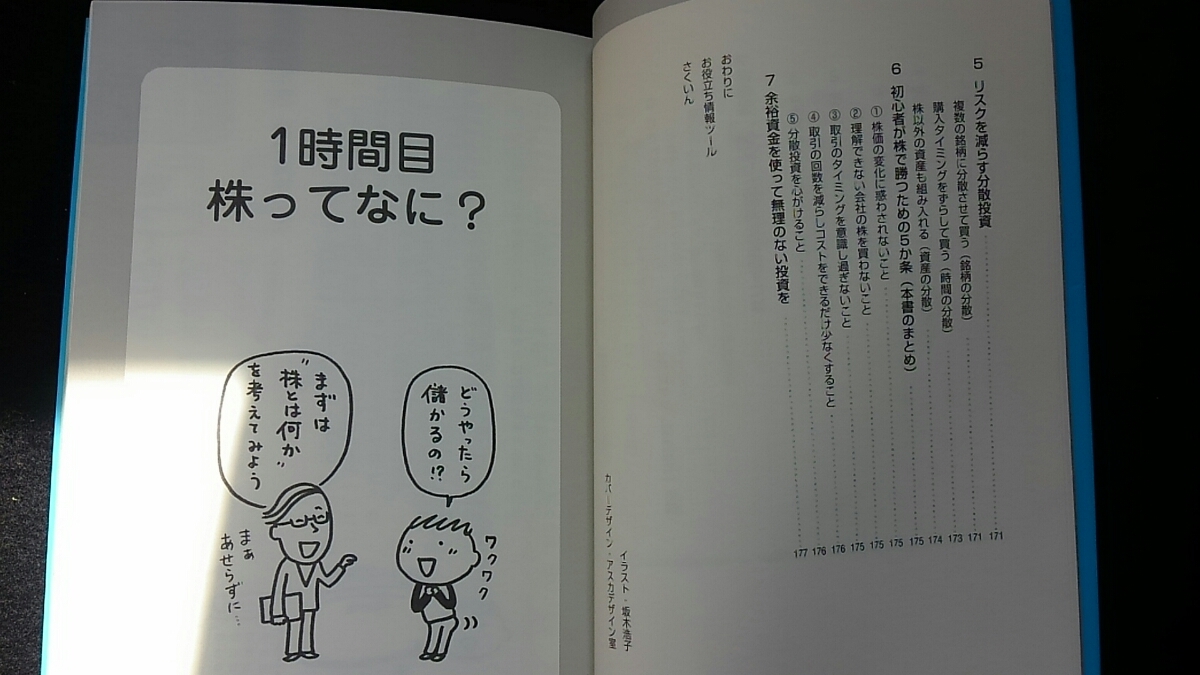 5 リスクを減らす分散投資 …… 171
複数の銘柄に分散させて買う（銘柄の分散） …… 171
購入タイミングをずらして買う（時間の分散） …… 173
株以外の資産も組み入れる（資産の分散） …… 174
6 初心者が株で勝つための5か条（本書のまとめ） …… 175
① 株価の変化に惑わされないこと …… 175
② 理解できない会社の株を買わないこと …… 175
③ 取引のタイミングを意識し過ぎないこと …… 175
④ 取引の回数を減らしコストをできるだけ少なくすること …… 176
⑤ 分散投資を心がけること …… 176
7 余裕資金を使って無理のない投資を …… 177
おわりに
お役立ち情報ツール
さくいん
イラスト・坂木浩子
カバーデザイン・アスカデザイン室
1時間目
株ってなに？
どうやったら
儲かるの!?
ワクワク
まずは
"株とは何か"
を考えてみよう
まぁ
あせらずに…